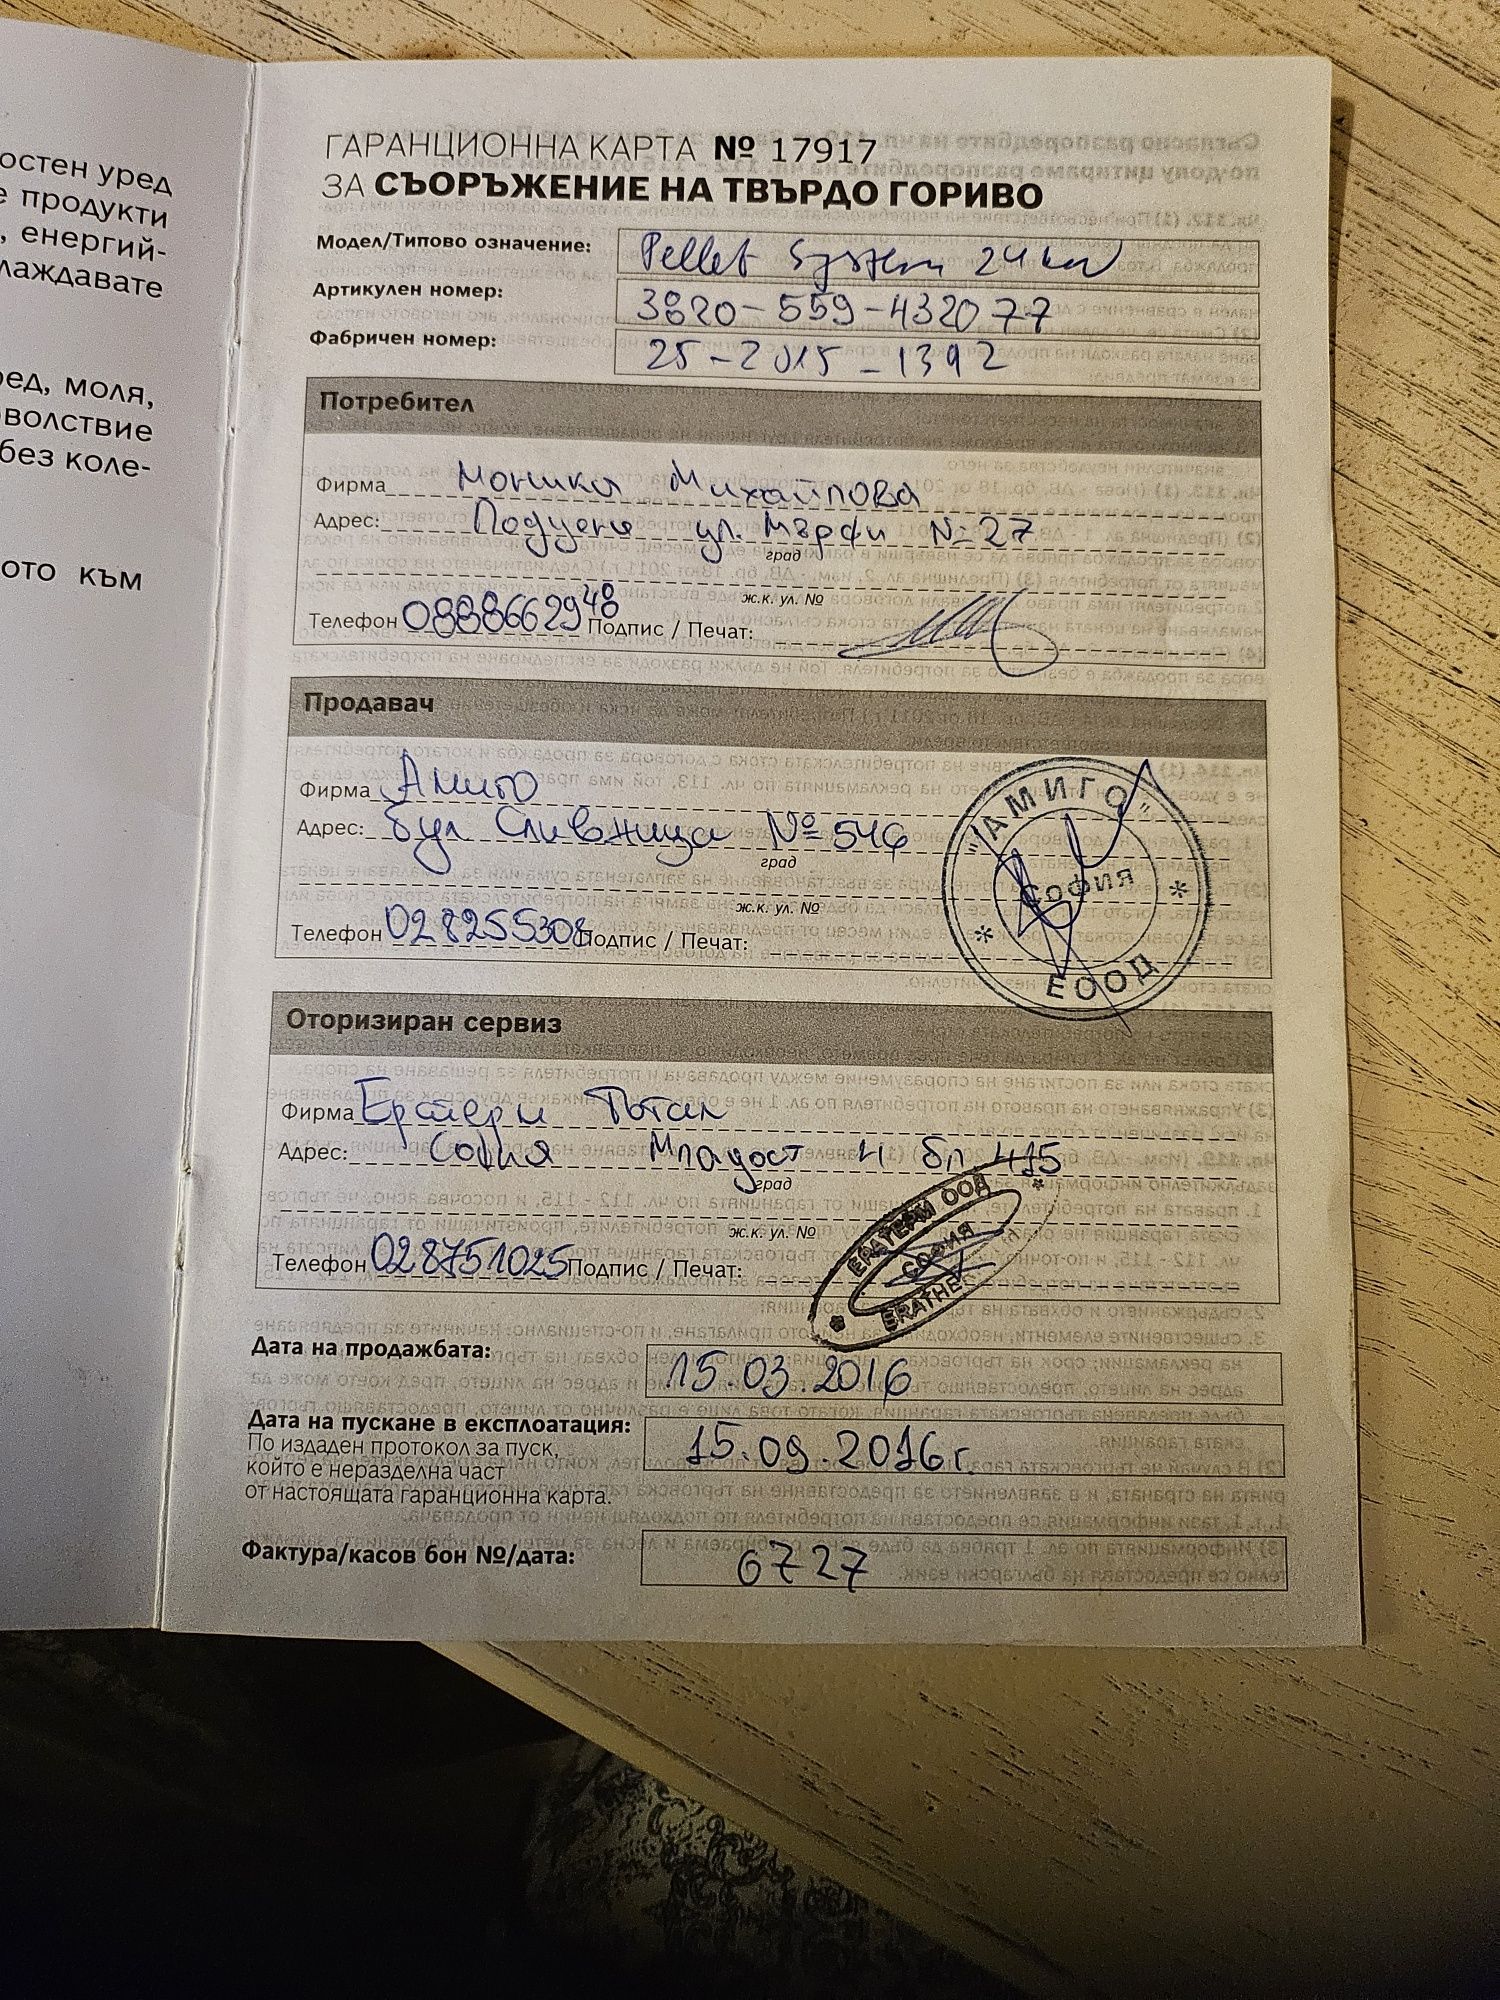 остен уред
е продукти
, енергий-
лаждавате
ред, моля,
оволствие
без коле-
ото към
ГАРАНЦИОННА КАРТА № 17917
ЗА СЪОРЪЖЕНИЕ НА ТВЪРДО ГОРИВО
Модел/Типово означение: Pellet System 24 kw
Артикулен номер: 3820-559-432077
Фабричен номер: 25-2015-1392
Потребител
Фирма Моника Михайлова
Адрес: Подуене ул. Мърфи № 27
град
ж.к. ул. №
Телефон 0888662948 Подпис / Печат:
Продавач
Фирма Амиго
Адрес: бул Сливница № 546
град
ж.к. ул. №
Телефон 028255308 Подпис / Печат:
"АМИГО"
СОФИЯ
ЕООД
Оторизиран сервиз
Фирма Ератерм Тотал
Адрес: София Младост 4 бл. 415
град
ж.к. ул. №
Телефон 028751025 Подпис / Печат:
ЕРАТЕРМ ООД
СОФИЯ
Дата на продажбата: 15.03.2016
Дата на пускане в експлоатация: 15.09.2016г.
По издаден протокол за пуск,
който е неразделна част
от настоящата гаранционна карта.
Фактура/касов бон №/дата: 6727